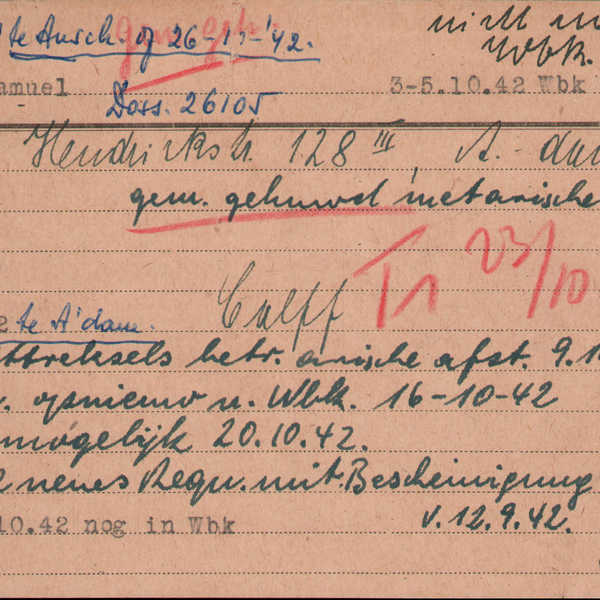 te Ausch. of 26-
gem. geh.
nicht
Wbk.
amuel
Doss. 26105
3-5.10.42 Wbk
Hendrikstr. 128 III, A. dam
gem. gehuwd met arische
T1 23/10
Calff
2 te A'dam.
ttreksels betr. arische afst. 9.1
opnieuw n. Wbk. 16-10-42
mogelijk 20.10.42.
neues Requ. mit Bescheinigung
v. 12.9.42.
10.42 nog in Wbk